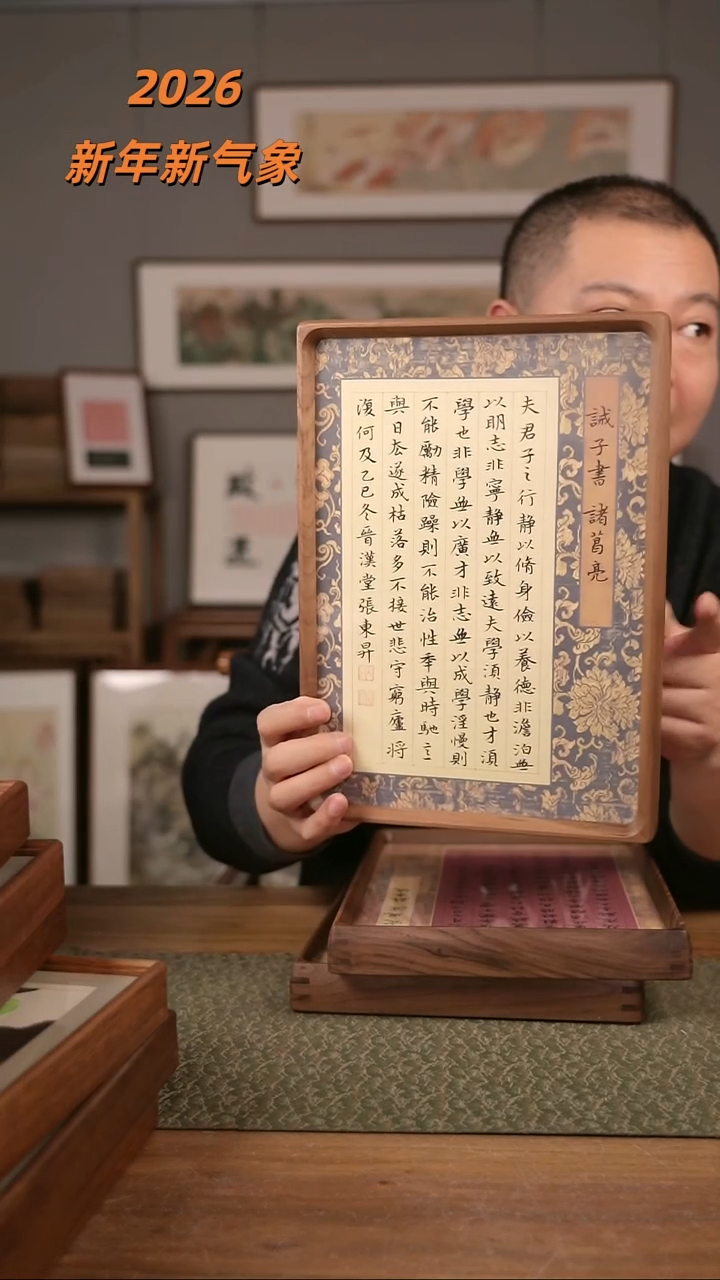 2026
新年新气象
誡子書 諸葛亮
夫君子之行静以脩身儉以養德非澹泊無
以明志非寧静無以致遠夫學湏静也才湏
學也非學無以廣才非志無以成學淫慢則
不能勵精險躁則不能治性年與時馳意
與日去遂成枯落多不接世悲守窮廬将
復何及乙巳冬晉漢堂張東昇